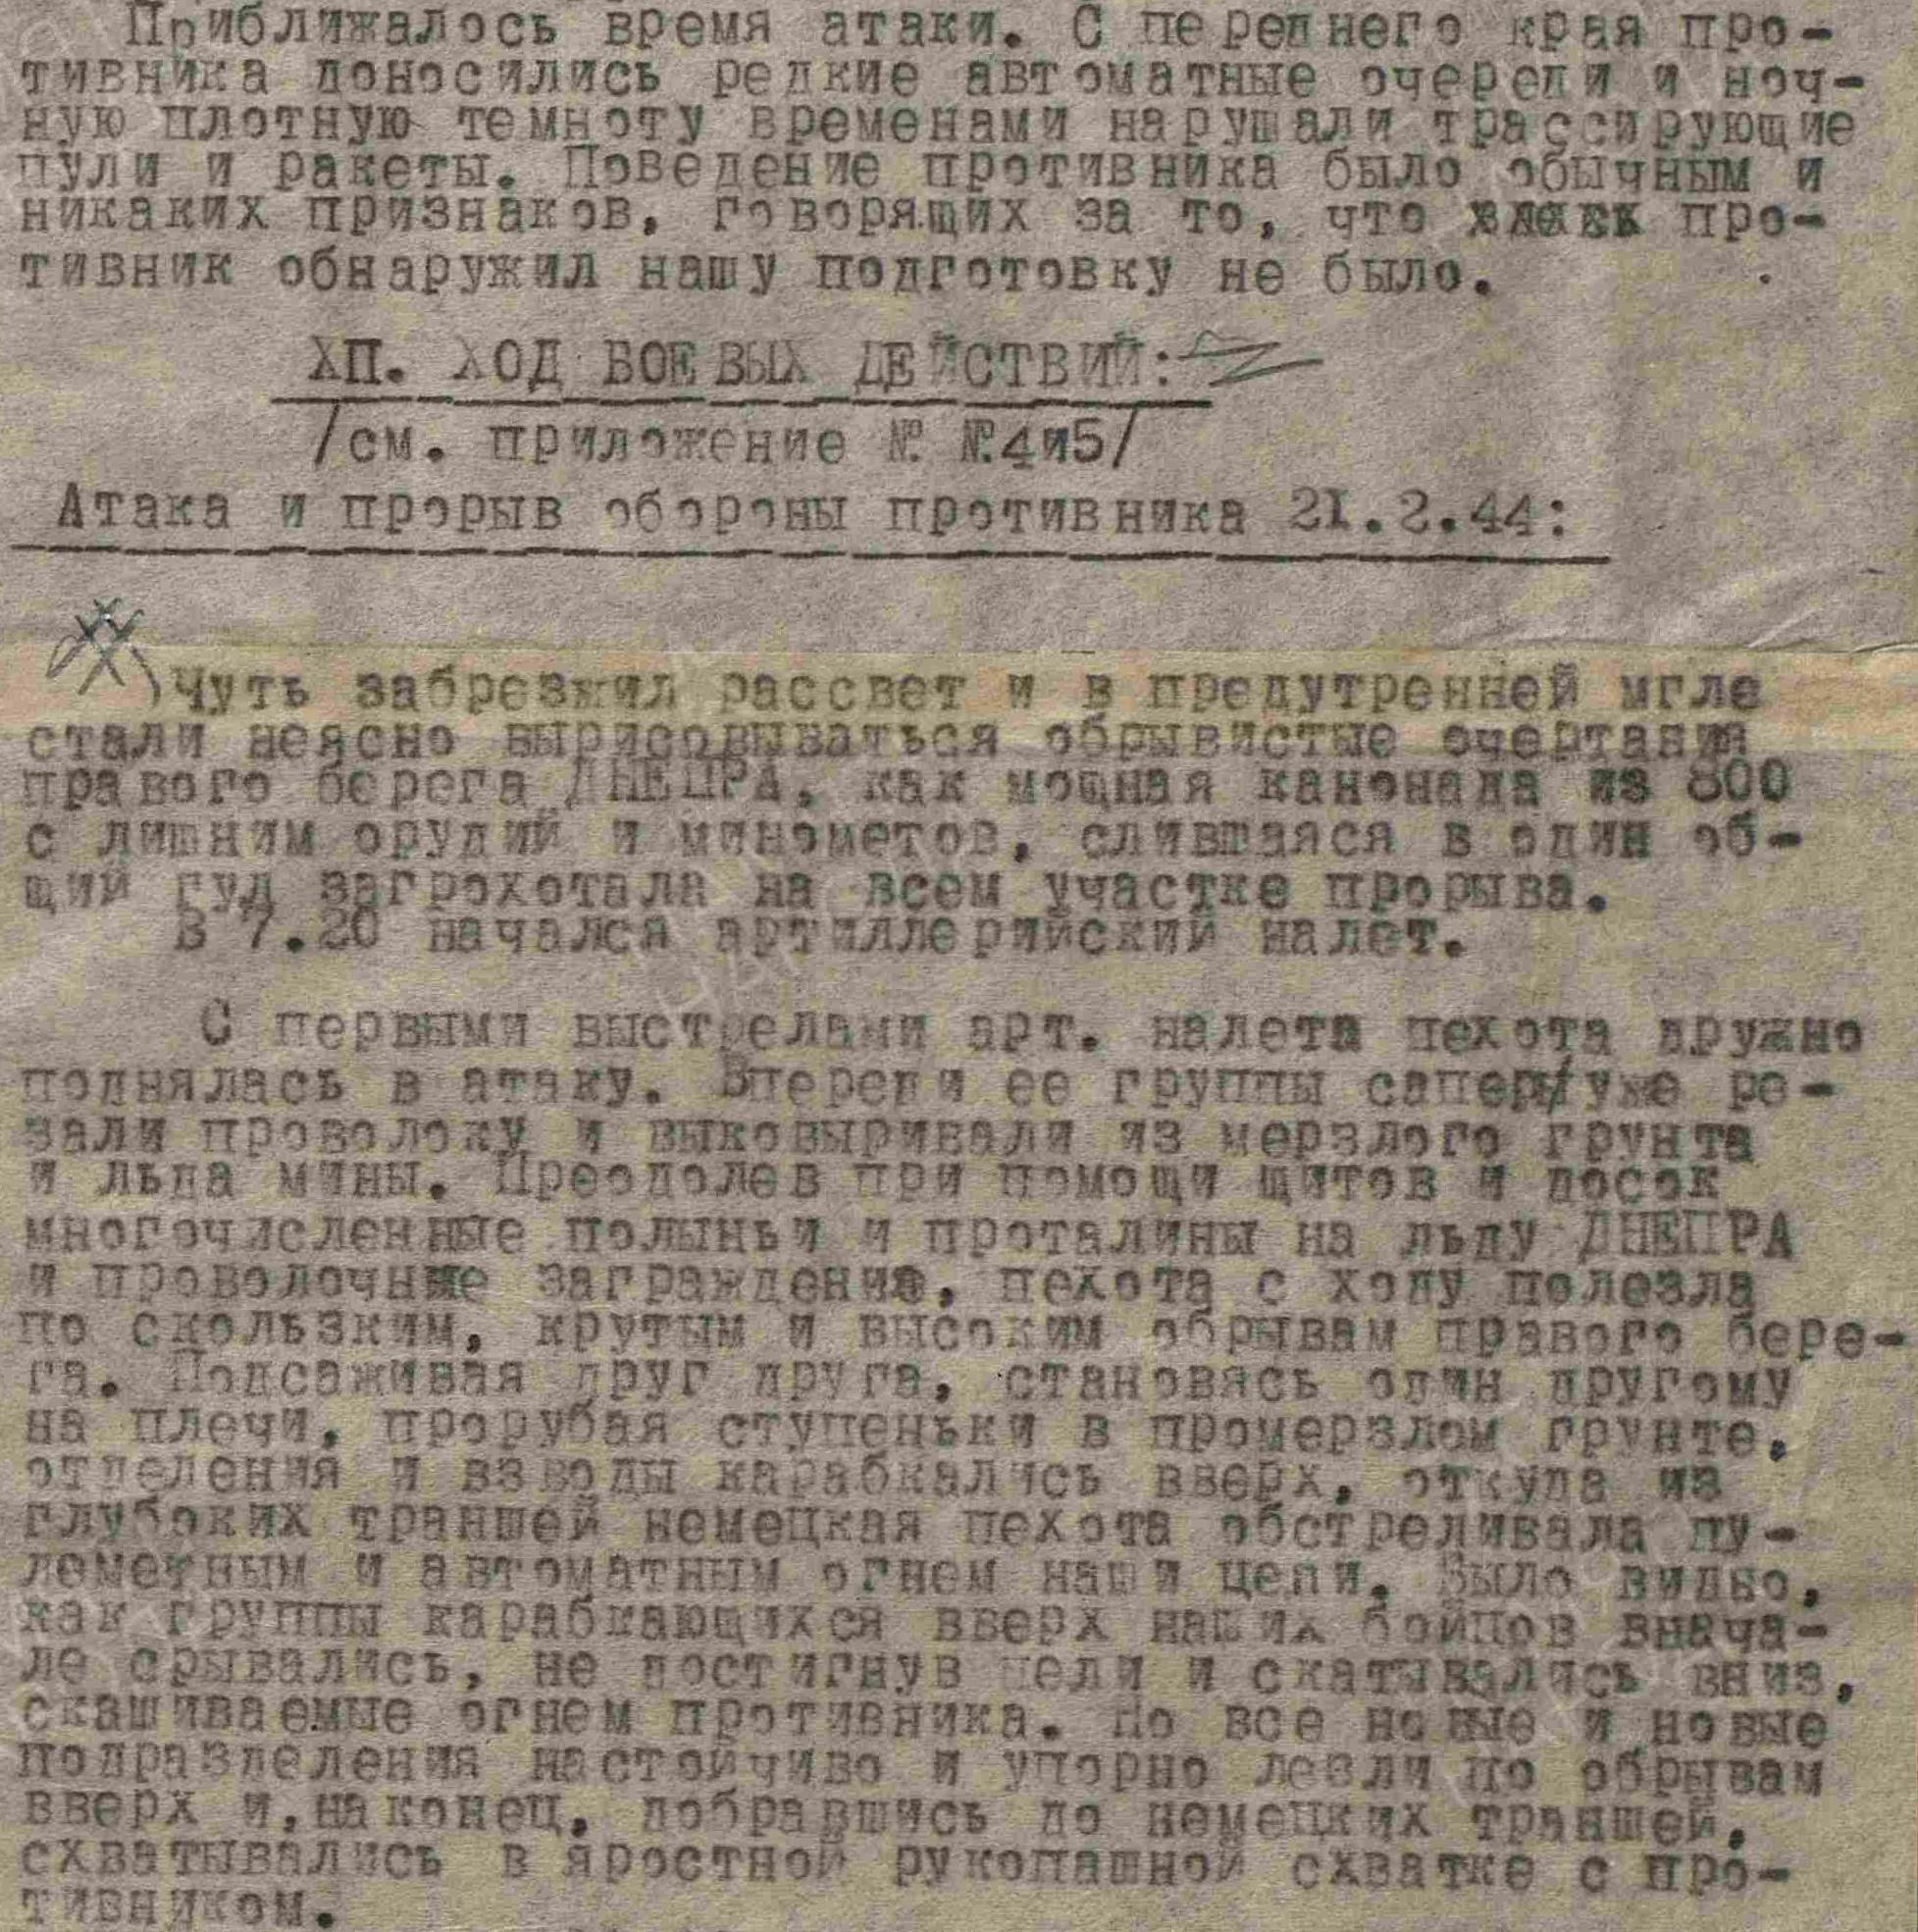 Приближалось время атаки. С переднего края про-
тивника доносились редкие автоматные очереди и ноч-
ную плотную темноту временами нарушали трассирующие
пули и ракеты. Поведение противника было обычным и
никаких признаков, говорящих за то, что про-
тивник обнаружил нашу подготовку не было.
ХП. ХОД БОЕВЫХ ДЕЙСТВИЙ:
/см. приложение № №4и5/
Атака и прорыв обороны противника 21.2.44:
Чуть забрезжил рассвет и в предутренней мгле
стали неясно вырисовываться обрывистые очертания
правого берега ДНЕПРА, как мощная канонада из 800
с лишним орудий и минометов, слившаяся в один об-
щий гуд загрохотала на всем участке прорыва.
В 7.20 начался артиллерийский налет.
С первыми выстрелами арт. налета пехота дружно
поднялась в атаку. Впереди ее группы саперы уже ре-
зали проволоку и выковыривали из мерзлого грунта
и льда мины. Преодолев при помощи щитов и досок
многочисленные полыньи и проталины на льду ДНЕПРА
и проволочные заграждения, пехота с ходу полезла
по скользким, крутым и высоким обрывам правого бере-
га. Подсаживая друг друга, становясь один другому
на плечи, прорубая ступеньки в промерзлом грунте,
отделения и взводы карабкались вверх, откуда из
глубоких траншей немецкая пехота обстреливала пу-
леметным и автоматным огнем наши цепи. Было видно,
как группы карабкающихся вверх наших бойцов внача-
ле срывались, не достигнув цели и скатывались вниз,
скашиваемые огнем противника. Но все новые и новые
подразделения настойчиво и упорно лезли по обрывам
вверх и, наконец, добравшись до немецких траншей,
схватывались в яростной рукопашной схватке с про-
тивником.